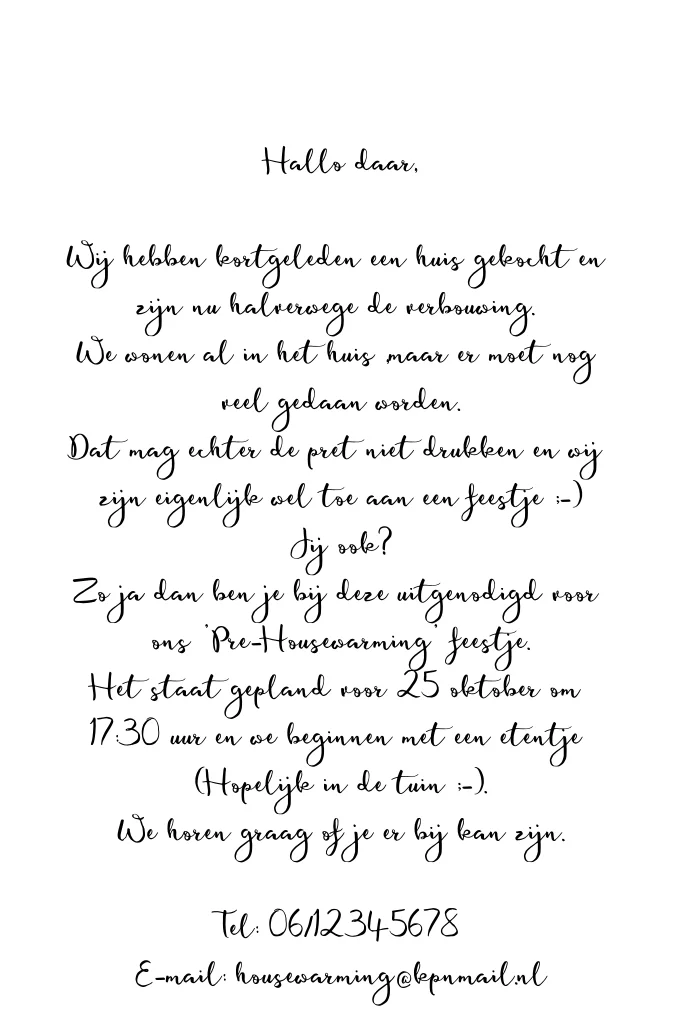 Hallo daar,
Wij hebben kortgeleden een huis gekocht en
zijn nu halverwege de verbouwing.
We wonen al in het huis ,maar er moet nog
veel gedaan worden.
Dat mag echter de pret niet drukken en wij
zijn eigenlijk wel toe aan een feestje ;-)
Jij ook?
Zo ja dan ben je bij deze uitgenodigd voor
ons 'Pre-Housewarming' feestje.
Het staat gepland voor 25 oktober om
17:30 uur en we beginnen met een etentje
(Hopelijk in de tuin ;-).
We horen graag of je er bij kan zijn.
Tel: 06/12345678
E-mail: housewarming@kpnmail.nl